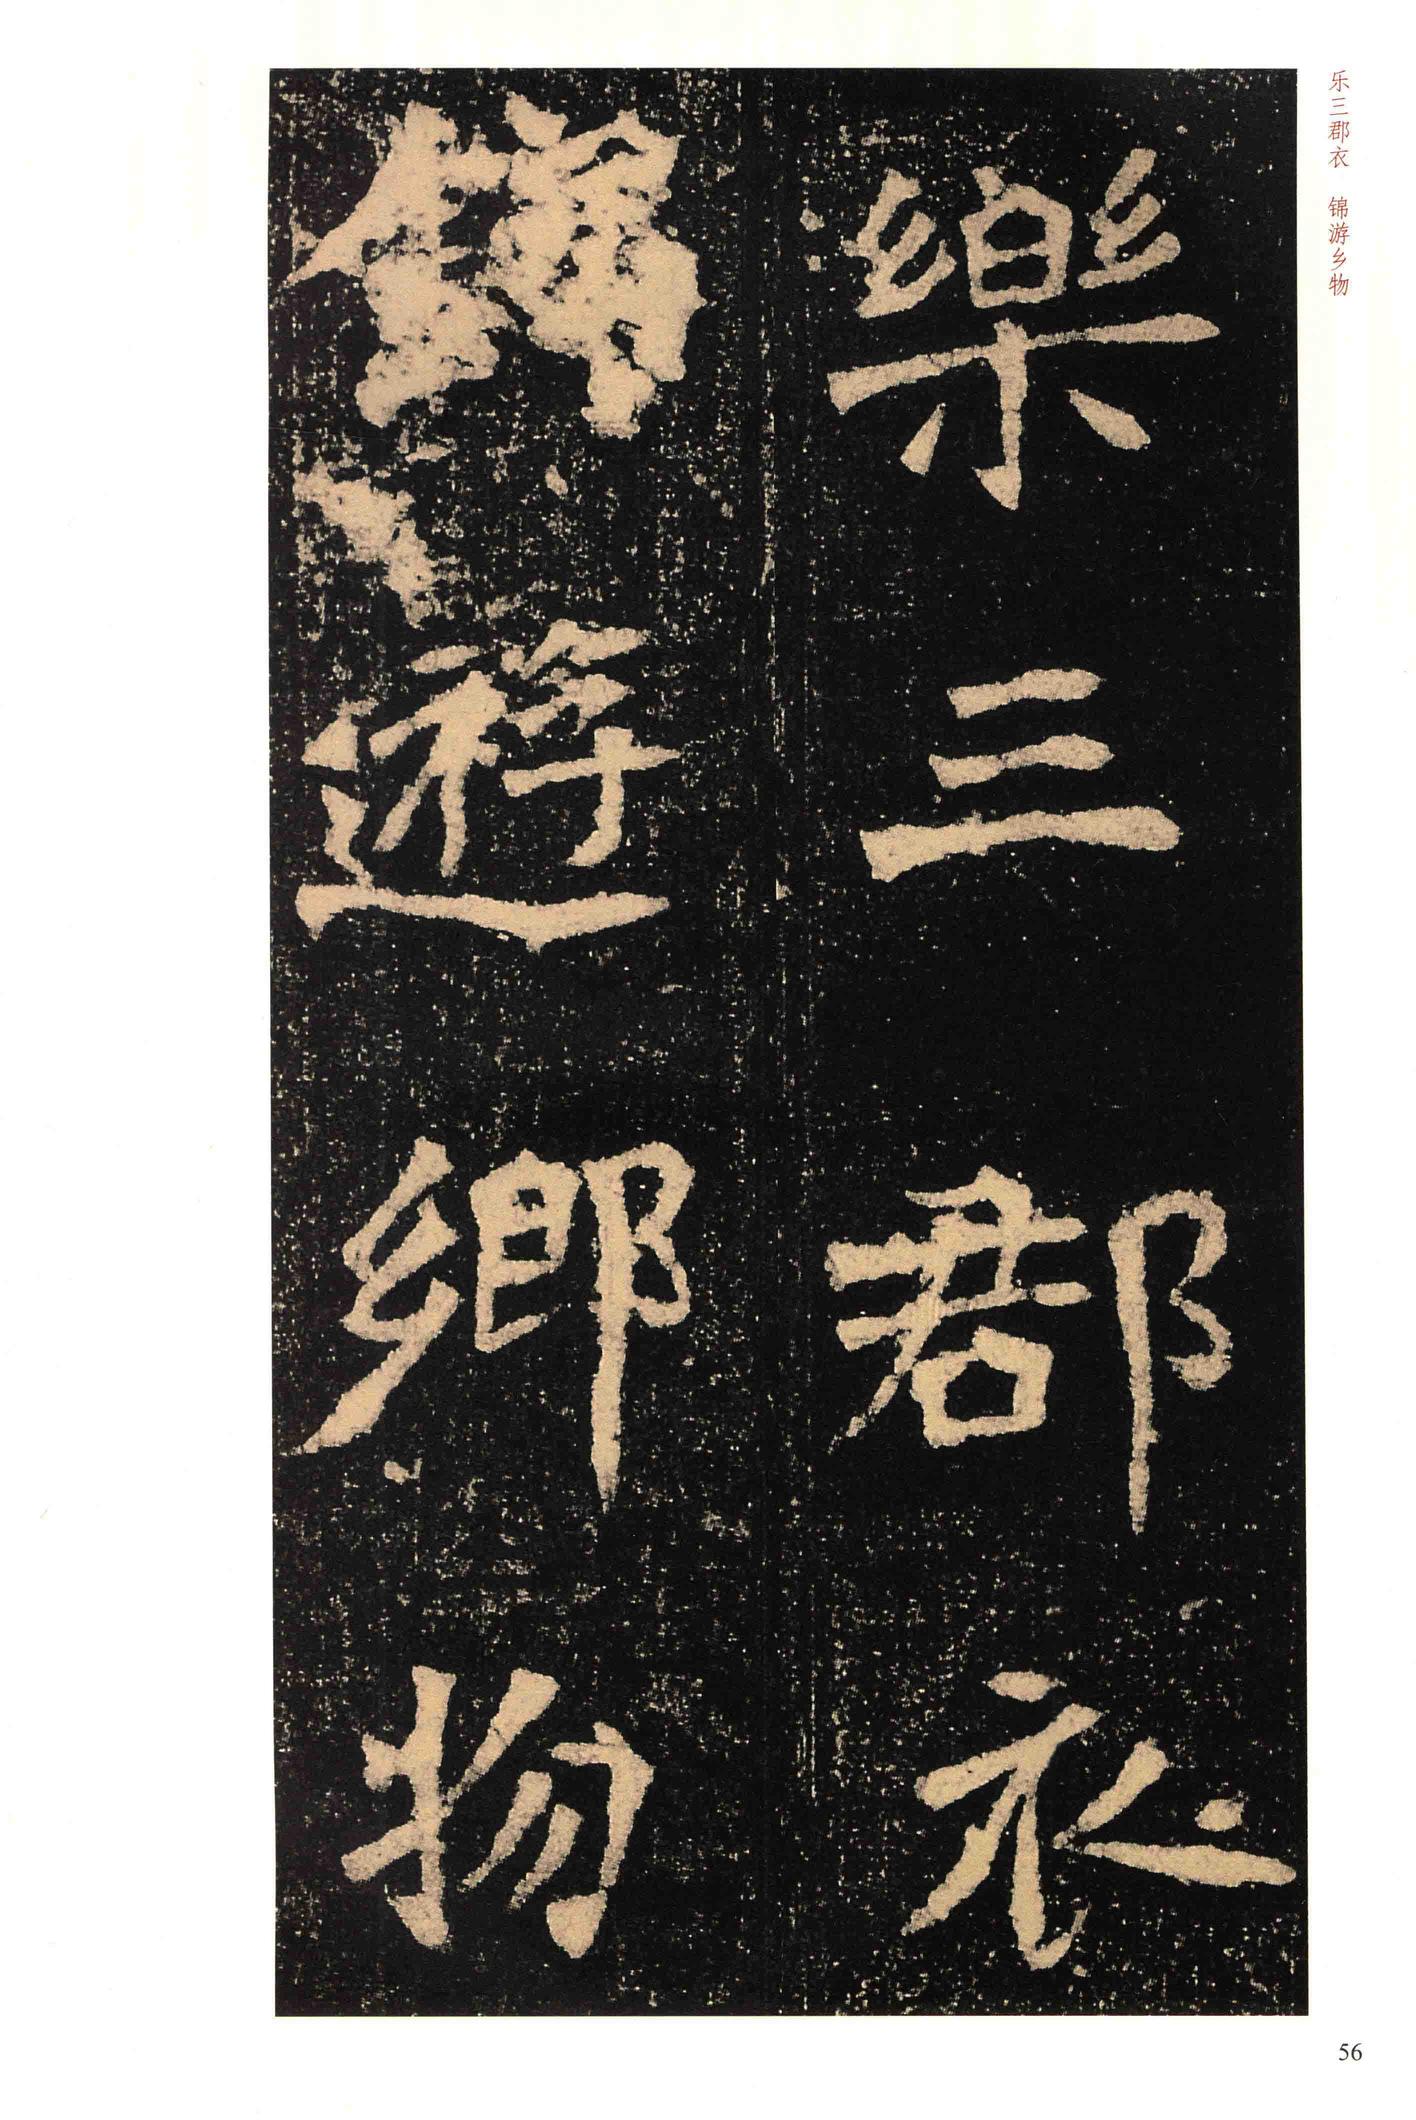 樂三郡衣
錦遊鄉物
乐三郡衣 锦游乡物
56